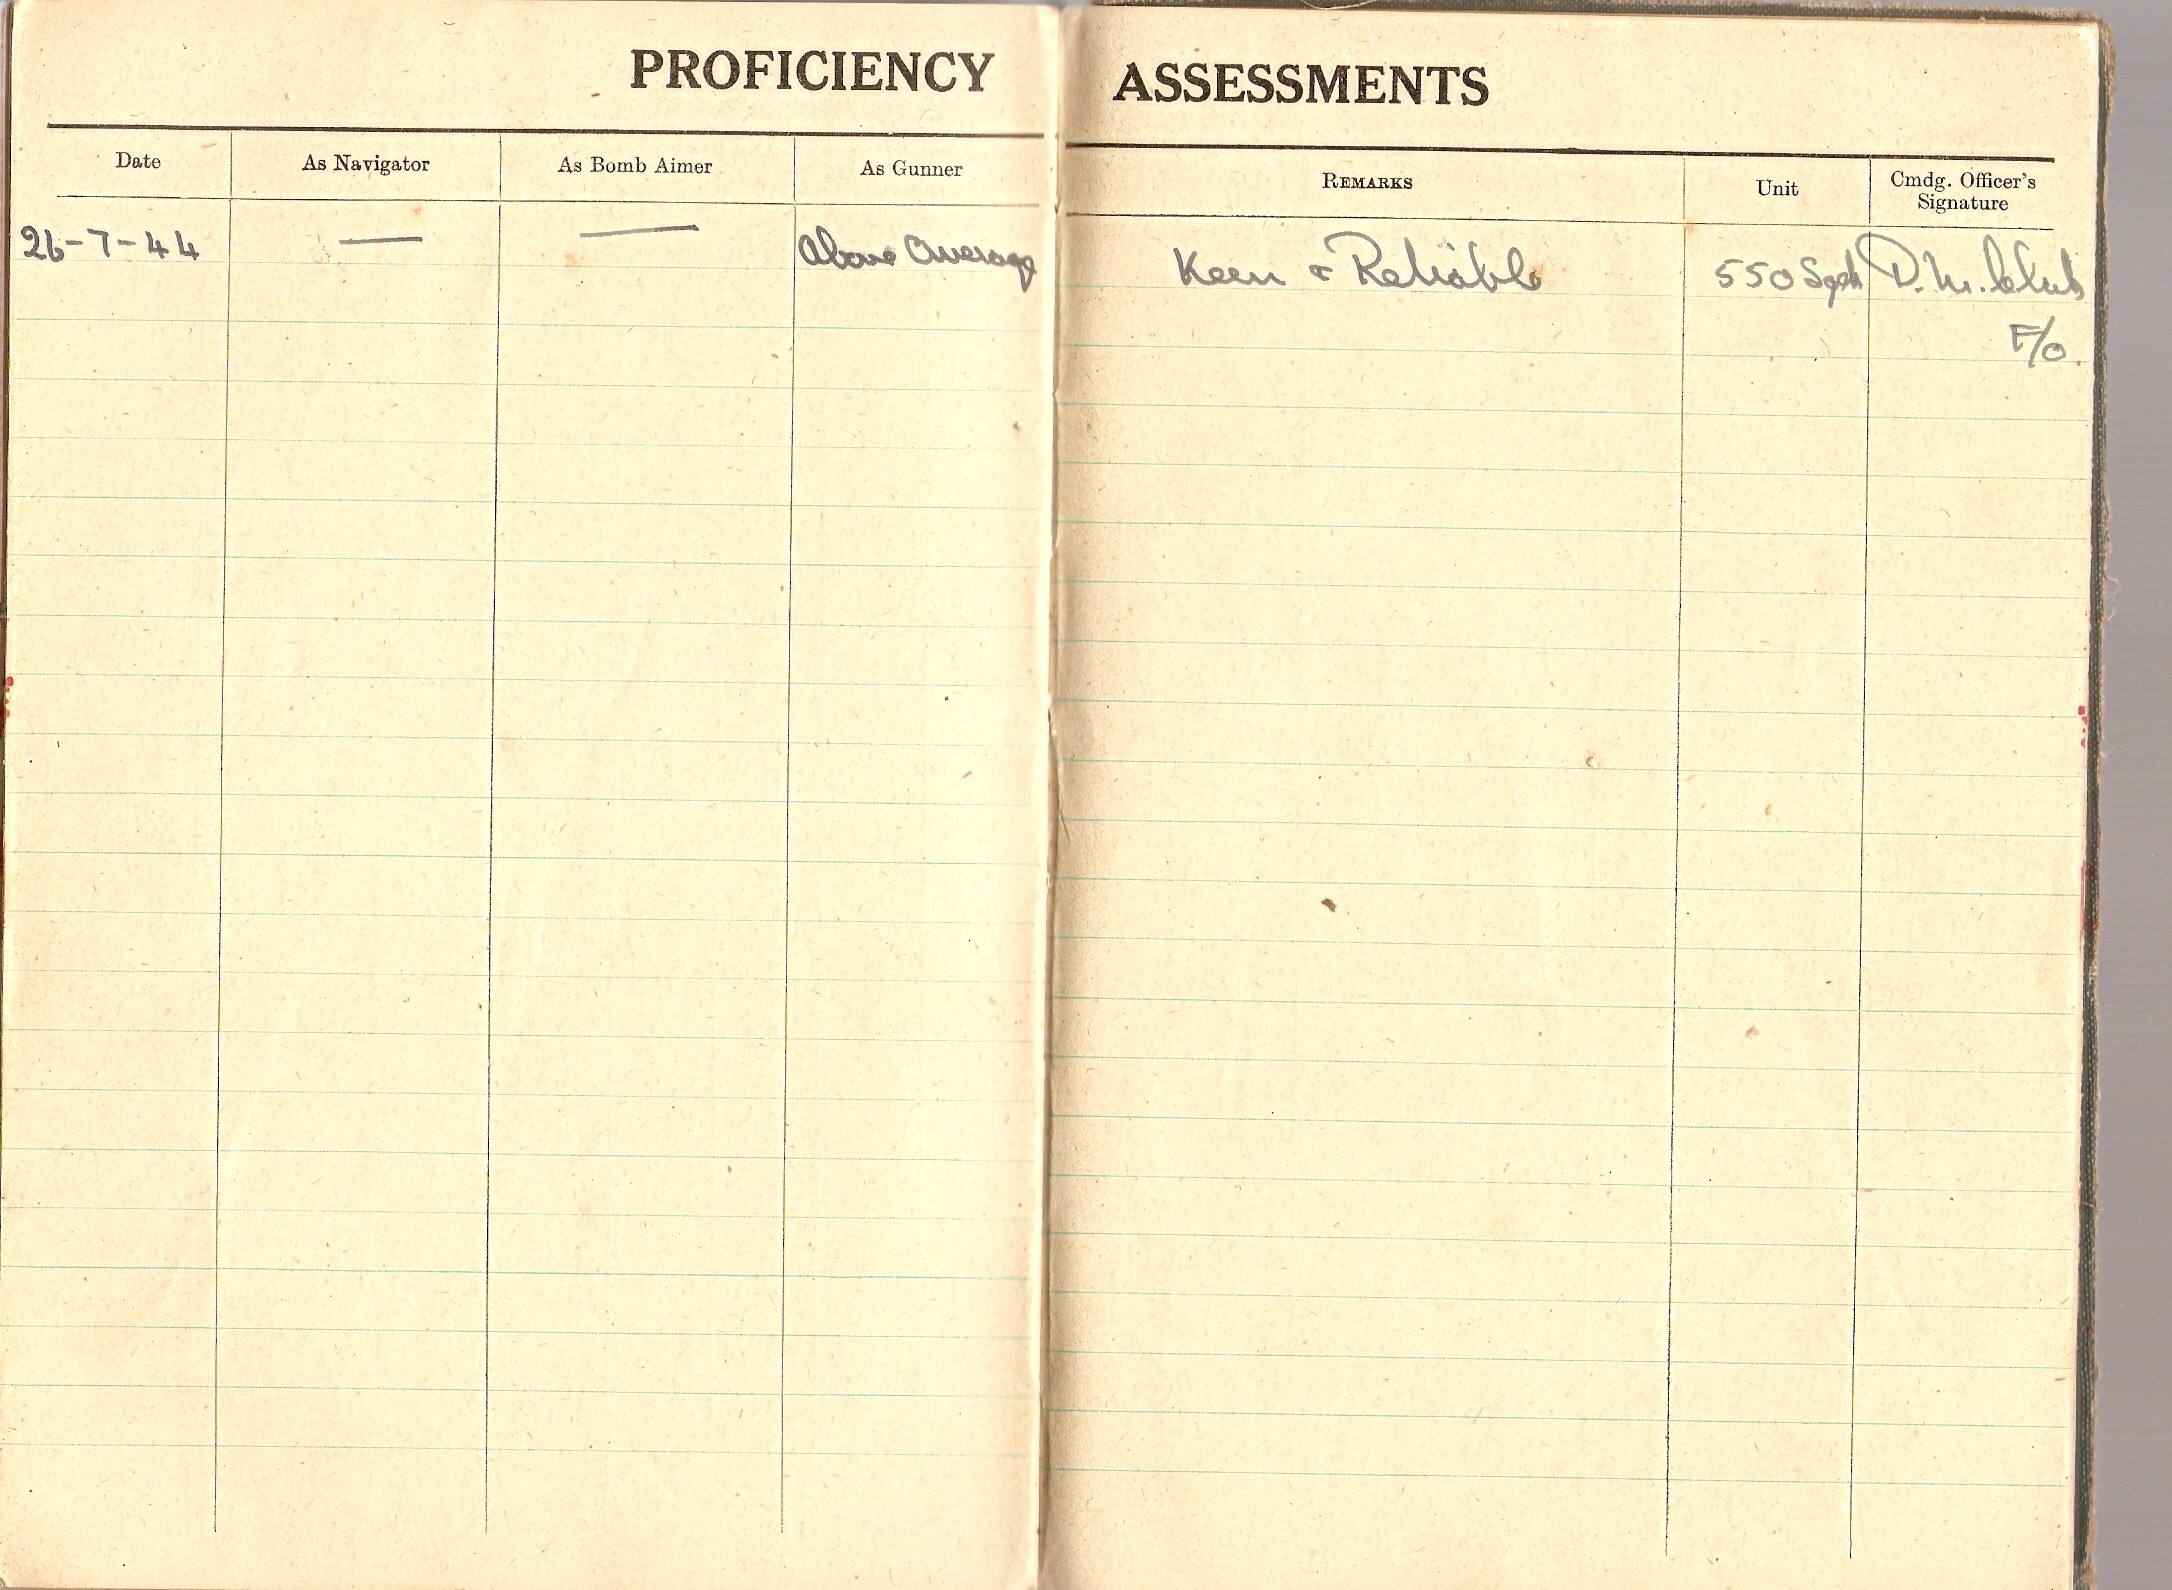 PROFICIENCY ASSESSMENTS
Date As Navigator As Bomb Aimer As Gunner REMARKS Unit Cmdg. Officer's
Signature
26-7-44 — — Above Average Keen & Reliable 550 Sqdn D. M.
F/O.